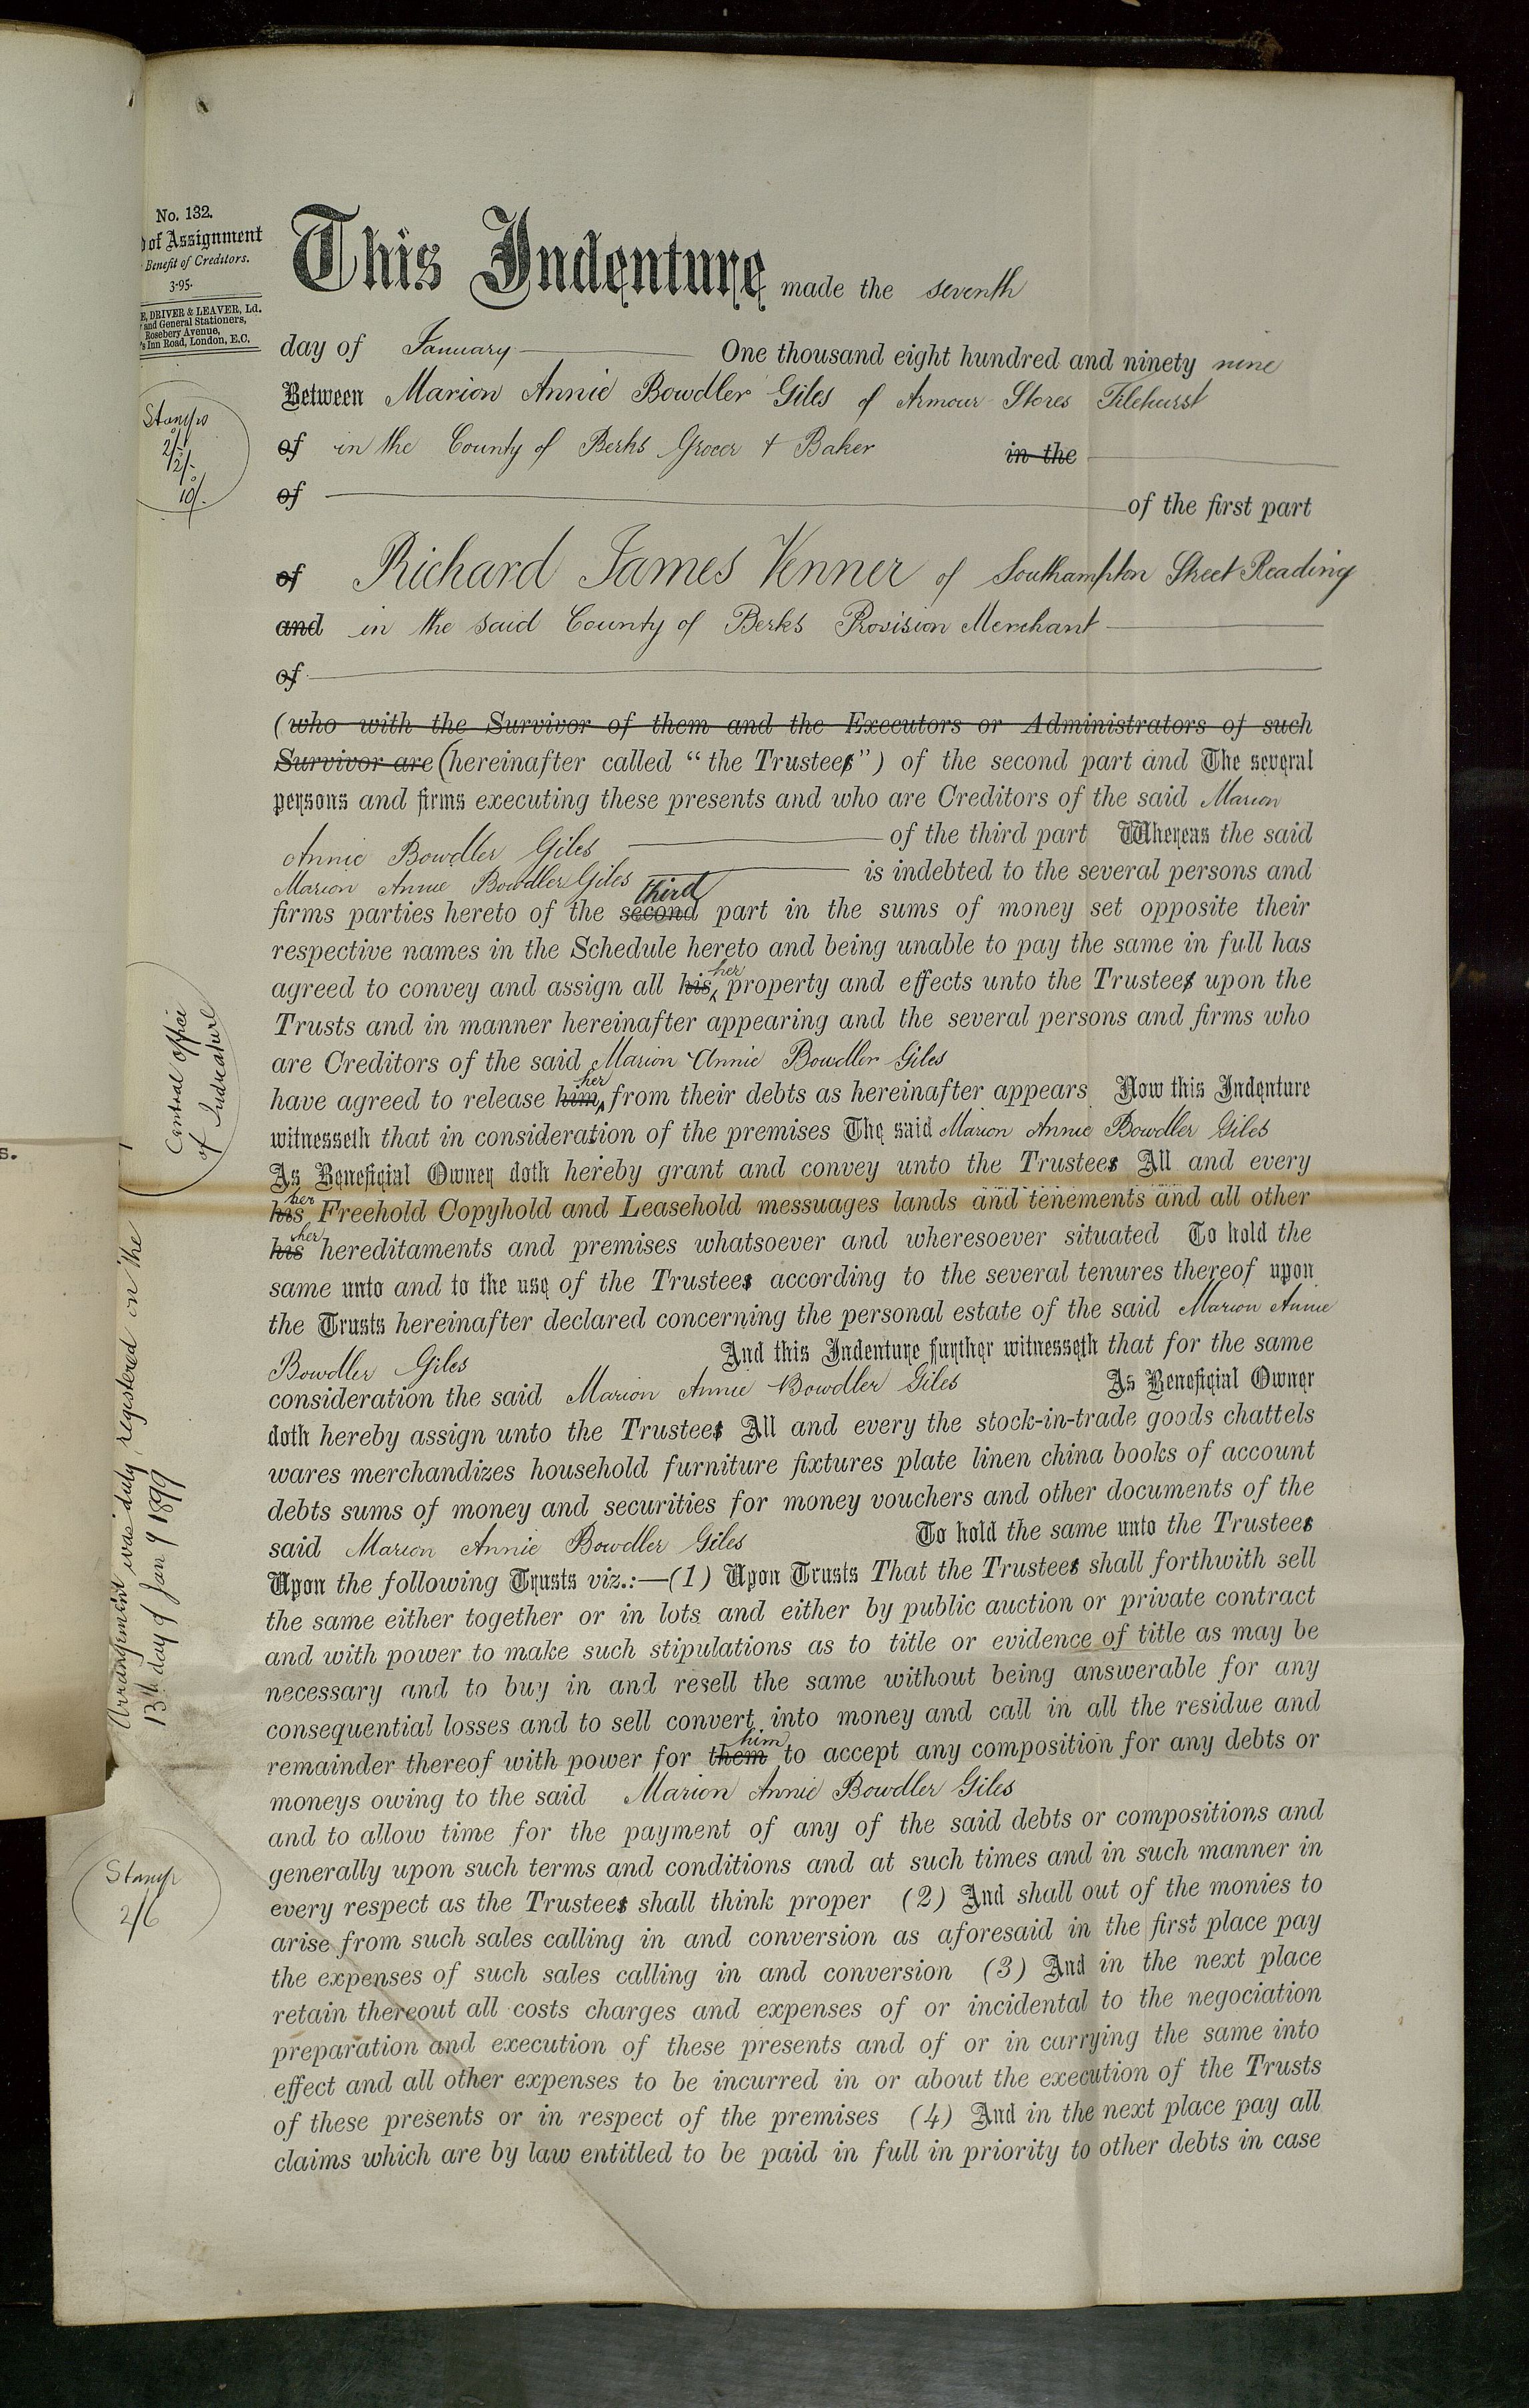 No. 132.
of Assignment
Benefit of Creditors.
3-95.
E, DRIVER & LEAVER, Ld.
and General Stationers,
Rosebery Avenue,
's Inn Road, London, E.C.
Stamps
2/-
2/-
10/.
This Indenture made the seventh
day of January One thousand eight hundred and ninety nine
Between Marion Annie Bowdler Giles of Armour Stores Tilehurst
of in the County of Berks Grocer & Baker in the
of of the first part
of Richard James Venner of Southampton Street Reading
and in the said County of Berks Provision Merchant
of
(who with the Survivor of them and the Executors or Administrators of such
Survivor are (hereinafter called "the Trustees") of the second part and The several
persons and firms executing these presents and who are Creditors of the said Marion
Annie Bowdler Giles of the third part Whereas the said
Marion Annie Bowdler Giles is indebted to the several persons and
firms parties hereto of the second third part in the sums of money set opposite their
respective names in the Schedule hereto and being unable to pay the same in full has
agreed to convey and assign all his her property and effects unto the Trustees upon the
Trusts and in manner hereinafter appearing and the several persons and firms who
are Creditors of the said Marion Annie Bowdler Giles
have agreed to release him her from their debts as hereinafter appears Now this Indenture
witnesseth that in consideration of the premises The said Marion Annie Bowdler Giles
As Beneficial Owner doth hereby grant and convey unto the Trustees All and every
his her Freehold Copyhold and Leasehold messuages lands and tenements and all other
his her hereditaments and premises whatsoever and wheresoever situated To hold the
same unto and to the use of the Trustees according to the several tenures thereof upon
the Trusts hereinafter declared concerning the personal estate of the said Marion Annie
Bowdler Giles And this Indenture further witnesseth that for the same
consideration the said Marion Annie Bowdler Giles As Beneficial Owner
doth hereby assign unto the Trustees All and every the stock-in-trade goods chattels
wares merchandizes household furniture fixtures plate linen china books of account
debts sums of money and securities for money vouchers and other documents of the
said Marion Annie Bowdler Giles To hold the same unto the Trustees
Upon the following Trusts viz.:—(1) Upon Trusts That the Trustees shall forthwith sell
the same either together or in lots and either by public auction or private contract
and with power to make such stipulations as to title or evidence of title as may be
necessary and to buy in and resell the same without being answerable for any
consequential losses and to sell convert into money and call in all the residue and
remainder thereof with power for them him to accept any composition for any debts or
moneys owing to the said Marion Annie Bowdler Giles
and to allow time for the payment of any of the said debts or compositions and
generally upon such terms and conditions and at such times and in such manner in
every respect as the Trustees shall think proper (2) And shall out of the monies to
arise from such sales calling in and conversion as aforesaid in the first place pay
the expenses of such sales calling in and conversion (3) And in the next place
retain thereout all costs charges and expenses of or incidental to the negociation
preparation and execution of these presents and of or in carrying the same into
effect and all other expenses to be incurred in or about the execution of the Trusts
of these presents or in respect of the premises (4) And in the next place pay all
claims which are by law entitled to be paid in full in priority to other debts in case
Central office
of Judicature
Arrangement was duly registered on the
13th day of Jany 1899
Stamp
2/6
s.